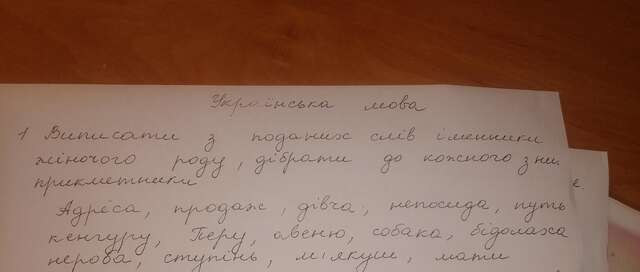 Українська мова
1 Виписати з поданих слів іменники
жіночого роду, дібрати до кожного з ни.
прикметники е
Адреса, продаж, дівча, непосида, путь
кенгуру, Перу, авеню, собака, бідолаха
нероба, ступінь, м'якуш, мати